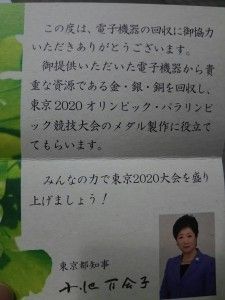 この度は、電子機器の回収に御協力
いただきありがとうございます。
御提供いただいた電子機器から貴
重な資源である金・銀・銅を回収し、
東京2020オリンピック・パラリンピ
ック競技大会のメダル製作に役立て
てもらいます。
みんなの力で東京2020大会を盛り
上げましょう！
東京都知事
小池百合子